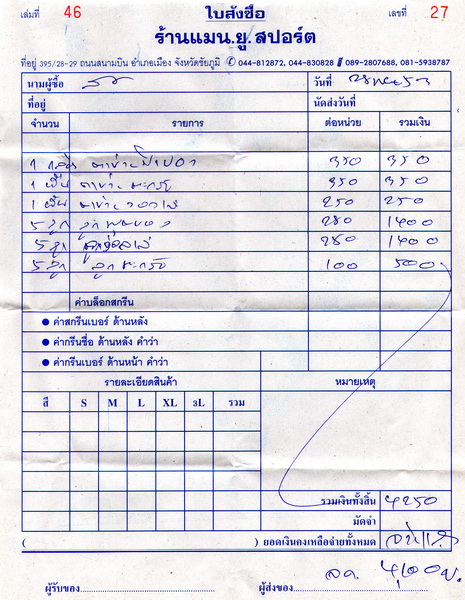 เล่มที่ 46 ใบสั่งซื้อ เลขที่ 27
ร้านแมน.ยู.สปอร์ต
ที่อยู่ 395/28-29 ถนนสนามบิน อำเภอเมือง จังหวัดชัยภูมิ 044-812872, 044-830828 089-2807688, 081-5938787
นามผู้ซื้อ วันที่
ที่อยู่ นัดส่งวันที่
จำนวน รายการ ต่อหน่วย รวมเงิน
1 ตาข่าย 350 350
1 ผืน ตาข่าย ตะกร้อ 350 350
1 ผืน ตาข่าย 250 250
5 ลูก 280 1400
5 ลูก 280 1400
5 ลูก ลูกตะกร้อ 100 500
ค่าบล็อกสกรีน
● ค่าสกรีนเบอร์ ด้านหลัง
● ค่ากรีนชื่อ ด้านหลัง คำว่า
● ค่ากรีนเบอร์ ด้านหน้า คำว่า
รายละเอียดสินค้า หมายเหตุ
สี S M L XL 3L รวม
รวมเงินทั้งสิ้น 4250
มัดจำ
( ) ยอดเงินคงเหลือจ่ายทั้งหมด
ลด 4,100 บ.
ผู้รับของ ผู้ส่งของ